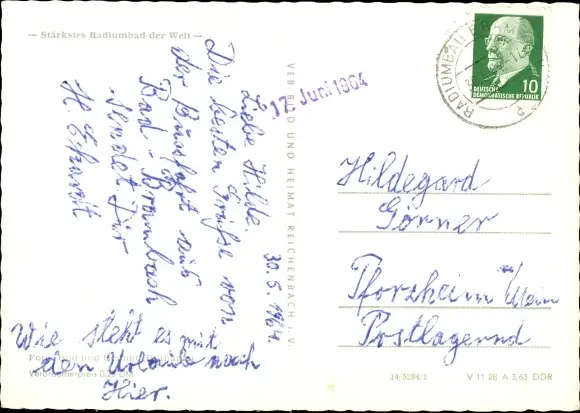 — Stärkstes Radiumbad der Welt —
30.5.1964
Liebe Hilde.
Die besten Grüße von
der Busfahrt aus
Bad-Brambach
sendet Dir
H.
Wie steht es mit
den Urlaub nach
Hier.
Verbraucherpreis 0,25 DM
VEB BILD UND HEIMAT REICHENBACH i. V.
17. Juni 1964
RADIUMBAD
DEUTSCHE
DEMOKRATISCHE REPUBLIK
10
Hildegard
Görner
Pforzheim
Postlagernd
14/5284/3
V 11 28 A 3,63 DDR